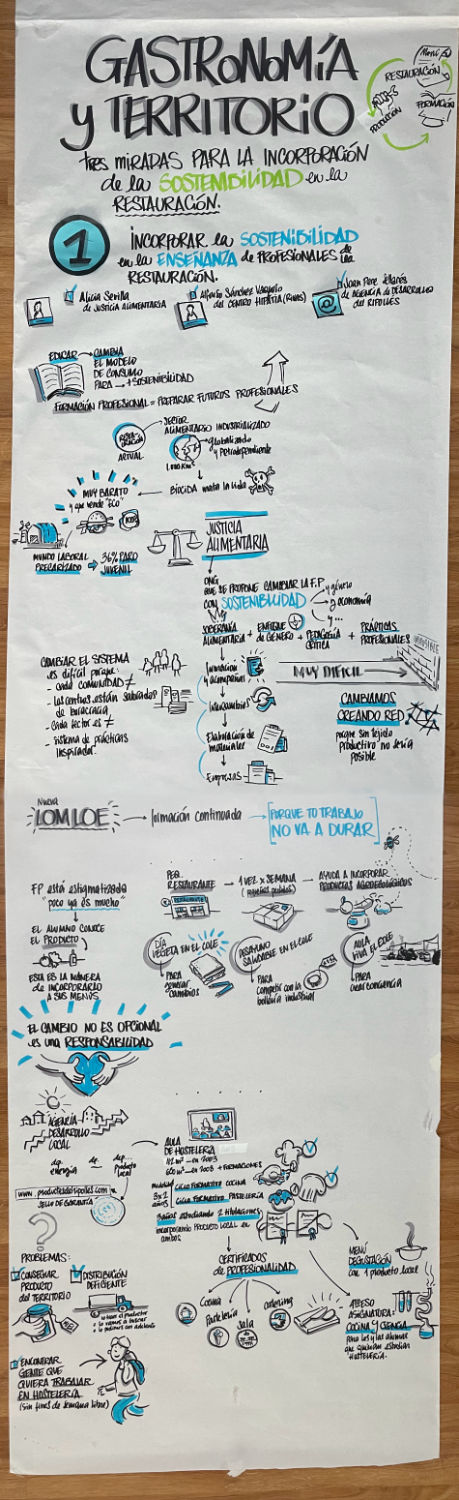 GASTRONOMÍA
y TERRITORIO
Menú
RESTAURACIÓN
FORMACIÓN
PRODUCCIÓN
TRES MIRADAS PARA LA INCORPORACIÓN
de la SOSTENIBILIDAD en la
RESTAURACIÓN.
1
INCORPORAR la SOSTENIBILIDAD
en la ENSEÑANZA de PROFESIONALES de la
RESTAURACIÓN.
Alicia Sevilla
de JUSTICIA ALIMENTARIA
Alberto Sánchez
del CENTRO HIPATIA (Rivas)
Joan Pere
de AGENCIA de DESARROLLO
del RIPOLLÈS
EDUCAR → CAMBIA
EL MODELO
DE CONSUMO
PARA → + SOSTENIBILIDAD
FORMACIÓN PROFESIONAL = PREPARAR FUTUROS PROFESIONALES
RESTAURACIÓN
ACTUAL
SECTOR
ALIMENTARIO INDUSTRIALIZADO
globalizado
y Petrodependiente
BIOCIDA mata la vida
MUY BARATO
y que vende "ECO"
MUNDO LABORAL
PRECARIZADO → 36% PARO
JUVENIL
JUSTICIA
ALIMENTARIA
ONG
QUE SE PROPONE CAMBIAR LA F.P.
CON SOSTENIBILIDAD
y género
y economía
y ...
SOBERANÍA
ALIMENTARIA + ENFOQUE
DE GÉNERO + PEDAGOGÍA
CRÍTICA + PRÁCTICAS
PROFESIONALES
formación
y acompañan
MUY DIFÍCIL
Intercambios
Elaboración de
materiales
Empresas
CAMBIAR EL SISTEMA
es difícil porque
- cada COMUNIDAD ≠
- los centros están saturados
de burocracia
- Cada sector es ≠
- sistema de prácticas
inspirador
CAMBIAMOS
CREANDO RED
porque sin tejido
productivo no sería
posible
Nueva
LOMLOE → formación continuada → PORQUE TU TRABAJO
NO VA A DURAR
FP está estigmatizada
"poco ya es mucho"
EL ALUMNO CONOCE
EL PRODUCTO
ESTA ES LA MANERA
de INCORPORARLO
A SUS MENÚS
PEQ.
RESTAURANTE → 1 VEZ x SEMANA → AYUDA A INCORPORAR
PRODUCTOS AGROECOLÓGICOS
RESTAURANTE
DÍA
VEGETA EN EL COLE
PARA
generar
cambios
DESAYUNO
SALUDABLE EN EL COLE
PARA
competir con la
bollería industrial
AULA
VIVA EL COLE
PARA
crear conciencia
EL CAMBIO NO ES OPCIONAL
es una RESPONSABILIDAD
AGENCIA
DESARROLLO
LOCAL
dep.
energía
de
dep.
Producto
local
SELLO DE GARANTÍA
AULA
DE HOSTELERÍA
+ FORMACIONES
CICLO FORMATIVO COCINA
3x2
años
CICLO FORMATIVO PASTELERÍA
3 años estudiando 2 titulaciones
incorporando PRODUCTO LOCAL en
ambos
CERTIFICADOS
de PROFESIONALIDAD
Cocina
Pastelería
Sala
Catering
MENÚ
DEGUSTACIÓN
con 1 producto local
ASIGNATURA:
COCINA Y CIENCIA
para los y las alumnas
que quieran estudiar
HOSTELERÍA.
PROBLEMAS:
CONSEGUIR
PRODUCTO
del TERRITORIO
DISTRIBUCIÓN
DEFICIENTE
lo trae el productor
lo vamos a buscar
MIEL
ENCONTRAR
GENTE QUE
QUIERA TRABAJAR
EN HOSTELERÍA
(Sin fines de semana libre)